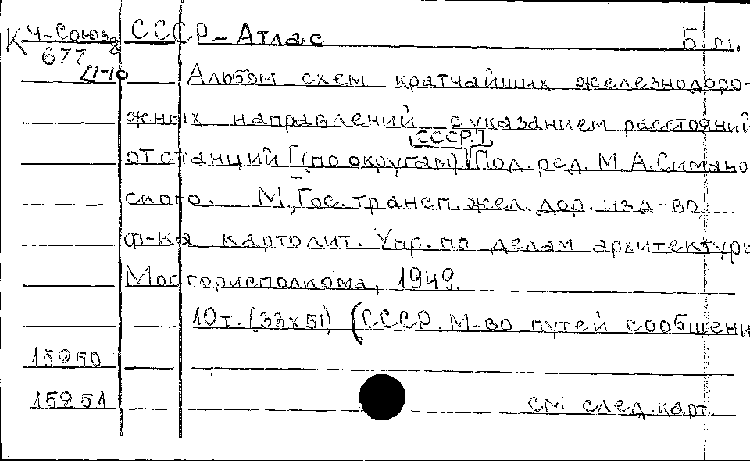 К Ч-Союз СССР - Атлас Б.м.
677
Д-10 Альбом схем кратчайших железнодоро-
жных направлений с указанием расстояний
[СССР.]
от станций [(по округам)] Под. ред. М.А.
ского. М., Гос. трансп. жел. дор. изд-во,
ф-ка картолит. Упр. по делам архитектуры
Мосгорисполкома, 1949.
10т. (33х51) (СССР. М-во путей сообщени
15950
15951 см след. карт.